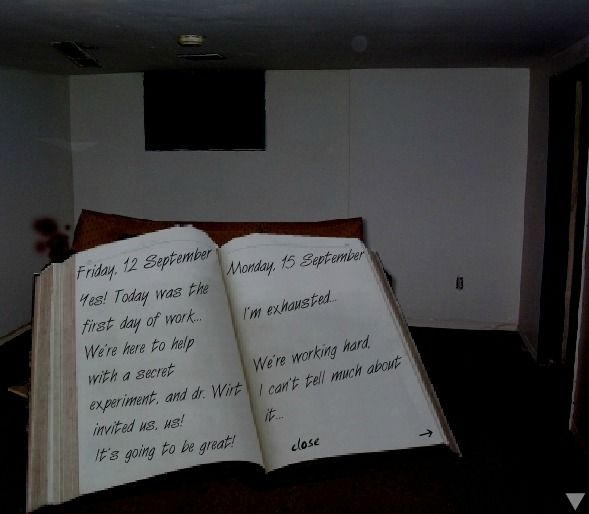 Friday, 12 September
Yes! Today was the
first day of work...
We're here to help
with a secret
experiment, and dr. Wirt
invited us, us!
It's going to be great!
Monday, 15 September
I'm exhausted...
We're working hard.
I can't tell much about
it...
close
→